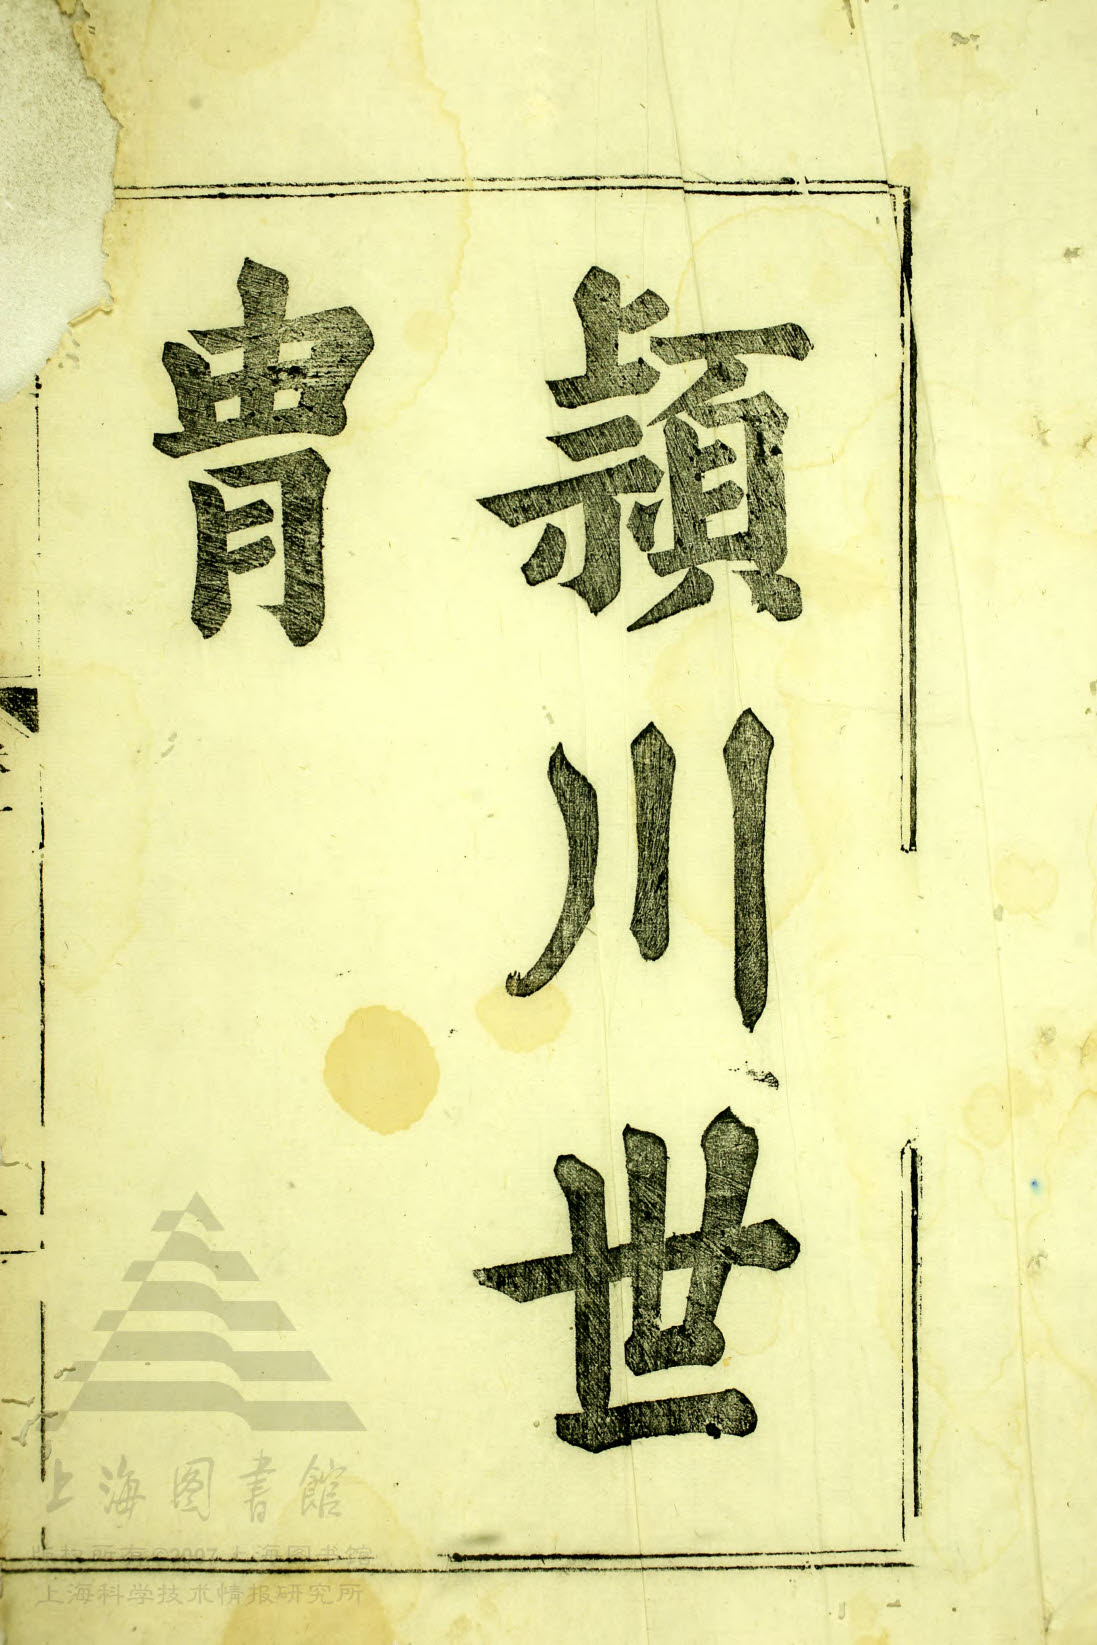 頴川世
冑
上海图書館
版权所有©2007 上海图书馆
上海科学技术情报研究所